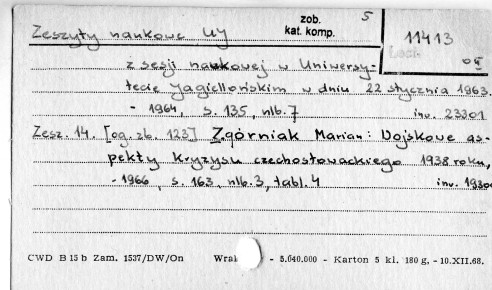 zob.
kat. komp.
5
Zeszyty naukowe UJ
11413
z sesji naukowej w Uniwersy-
tecie Jagiellońskim w dniu 22 stycznia 1963.
- 1964, s. 135, nlb. 7 inv. 23301
Zesz. 14. [og. zb. 123] Zgórniak Marian: Wojskowe as-
pekty kryzysu czechosłowackiego 1938 roku,
- 1966, s. 163, nlb. 3, tabl. 4 inv. 1930
CWD B 15 b Zam. 1537/DW/On - 5.040.000 - Karton 5 kl. 180 g. - 10.XII.68.